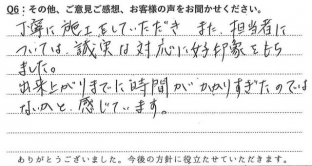 Q6：その他、ご意見ご感想、お客様の声をお聞かせください。
丁寧に施工をしていただき また、担当者に
ついては、誠実な対応に好印象をもち
ました。
出来上がりまでに時間がかかりすぎたのでは
ないかと、感じています。
ありがとうございました。今後の方針に役立たせていただきます。